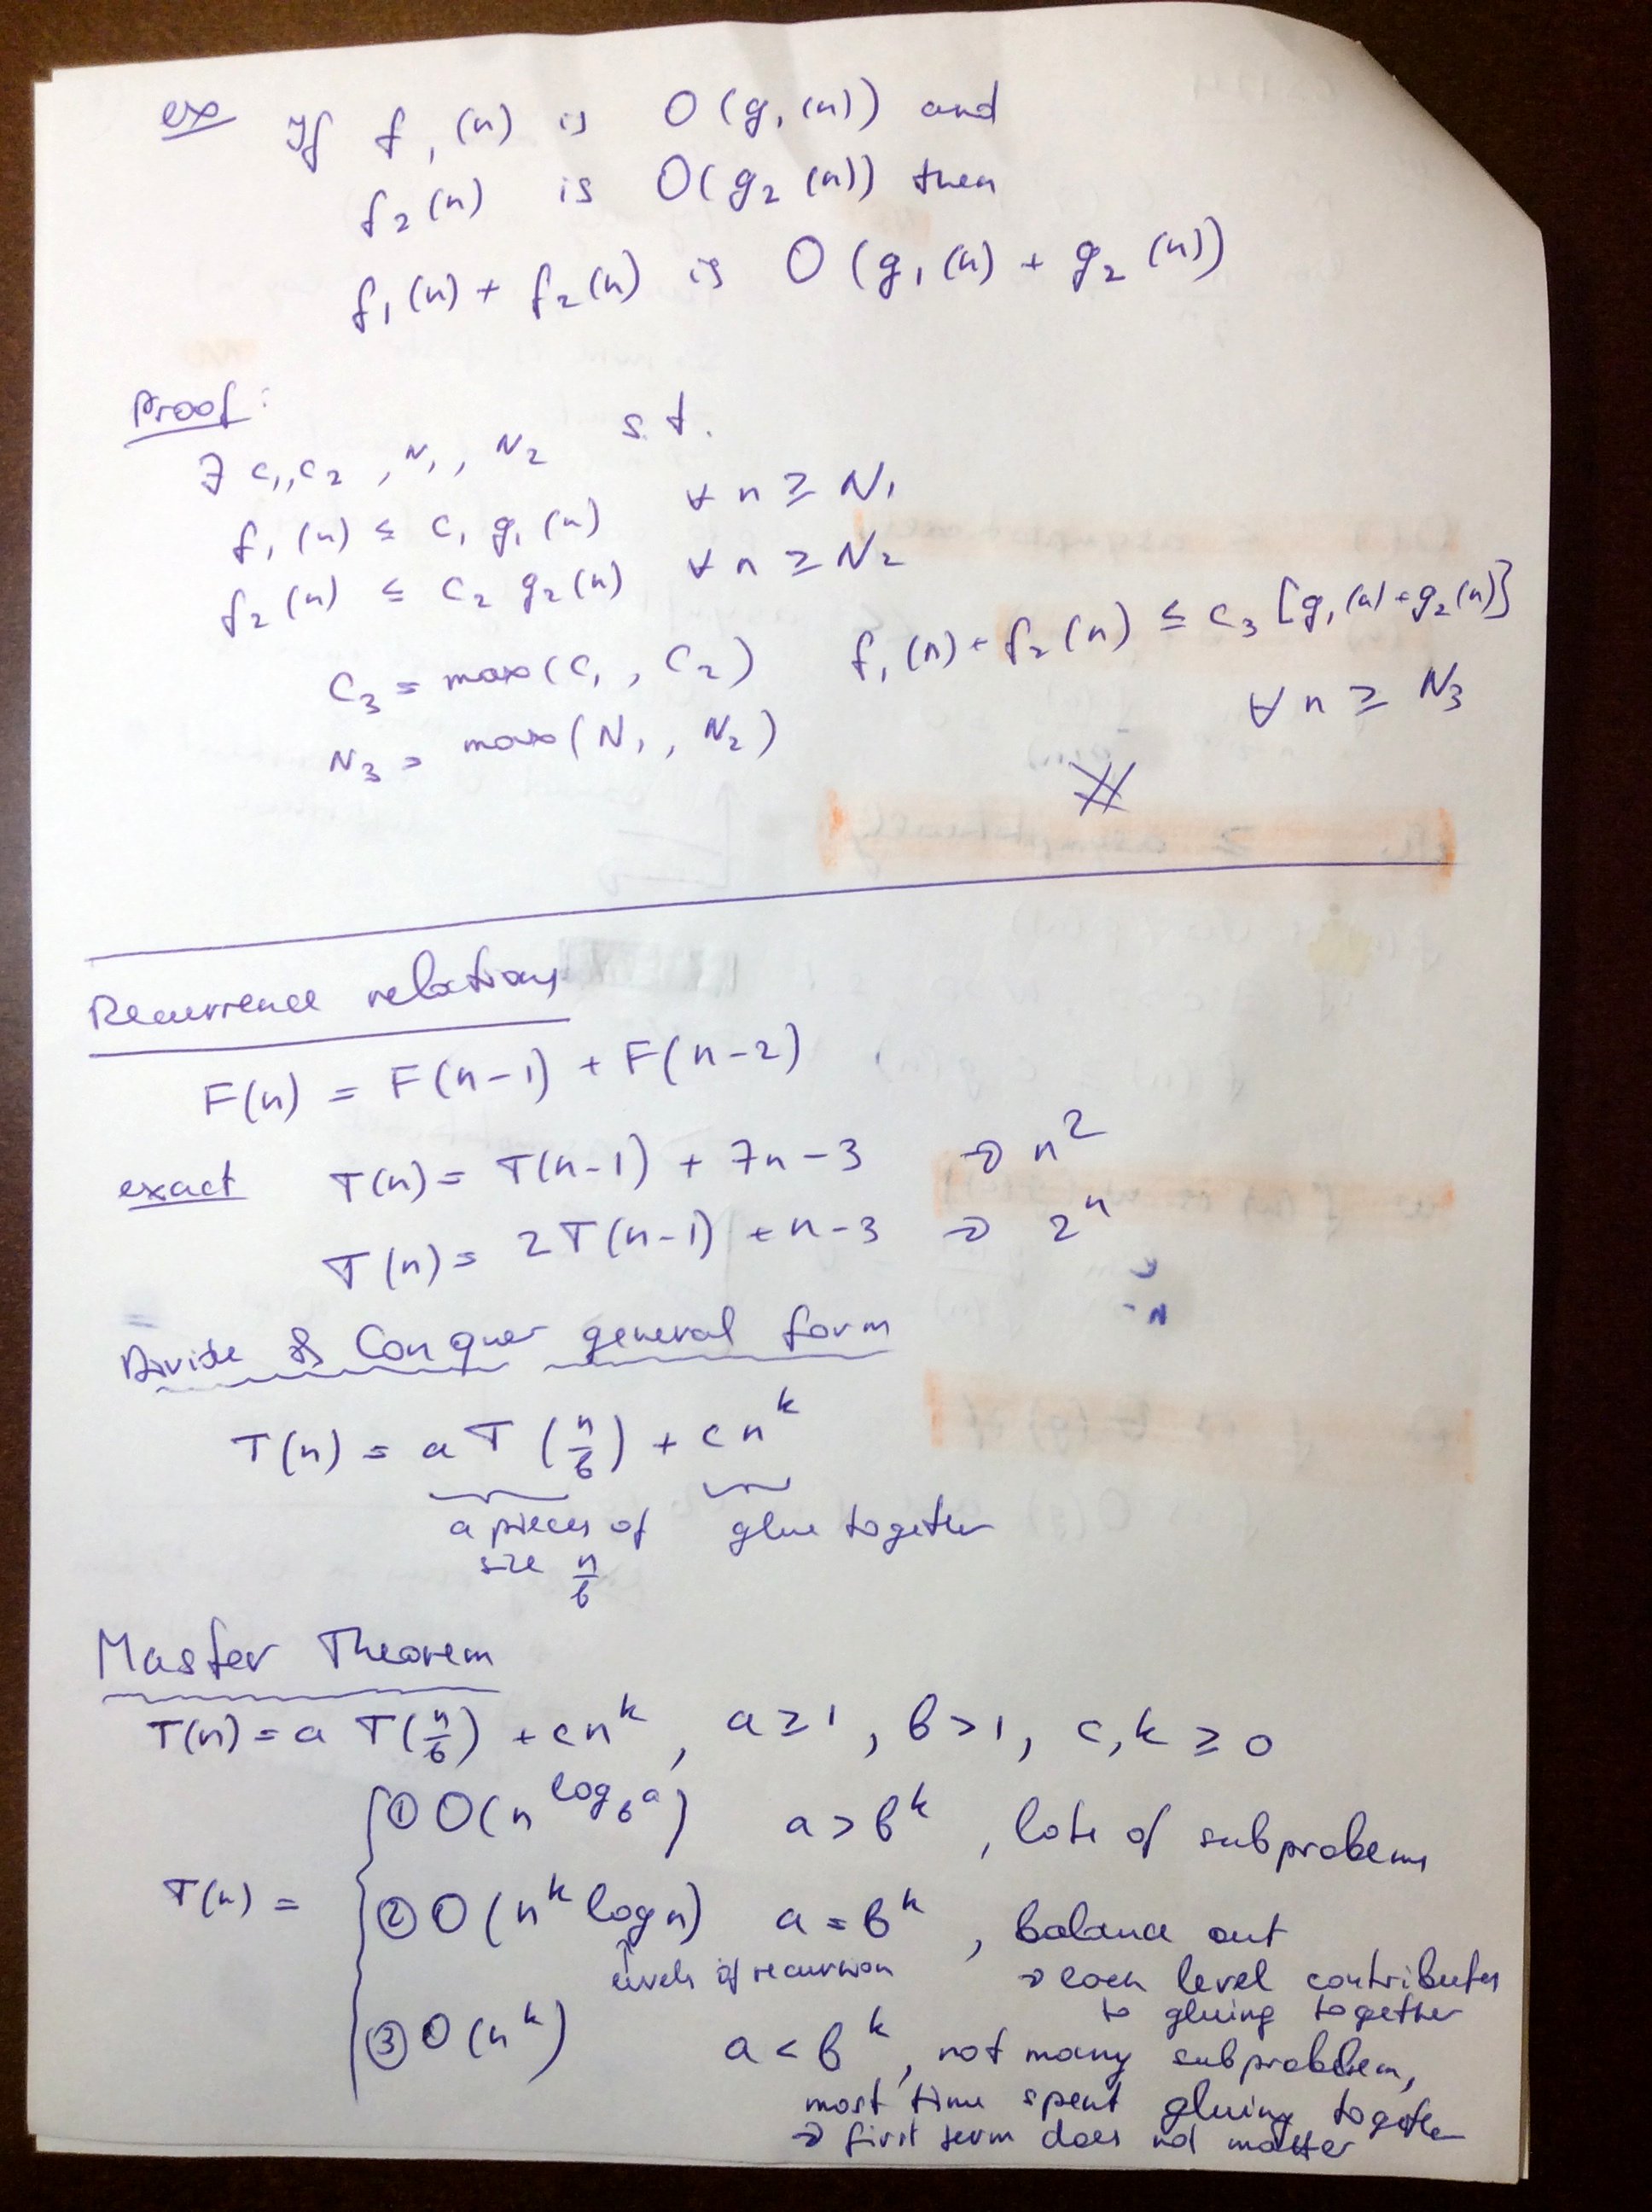 ex If f₁(n) is O(g₁(n)) and
f₂(n) is O(g₂(n)) then
f₁(n) + f₂(n) is O(g₁(n) + g₂(n))
Proof:
∃ c₁, c₂, N₁, N₂ s.t.
f₁(n) ≤ c₁ g₁(n) ∀ n ≥ N₁
f₂(n) ≤ c₂ g₂(n) ∀ n ≥ N₂
c₃ = max(c₁, c₂) f₁(n) + f₂(n) ≤ c₃ [g₁(n) + g₂(n)]
N₃ = max(N₁, N₂) ∀ n ≥ N₃
Recurrence relations
F(n) = F(n-1) + F(n-2)
exact T(n) = T(n-1) + 7n - 3 → n²
T(n) = 2T(n-1) + n - 3 → 2ⁿ
Divide & Conquer general form
T(n) = a T(n/b) + cn^k
a pieces of glue together
size n/b
Master Theorem
T(n) = a T(n/b) + cn^k, a ≥ 1, b > 1, c, k ≥ 0
① O(n^(log_b a)) a > b^k, lots of subproblems
T(n) = ② O(n^k log n) a = b^k, balance out
levels of recursion → each level contributes
to gluing together
③ O(n^k) a < b^k, not many subproblem,
most time spent gluing together
→ first term does not matter